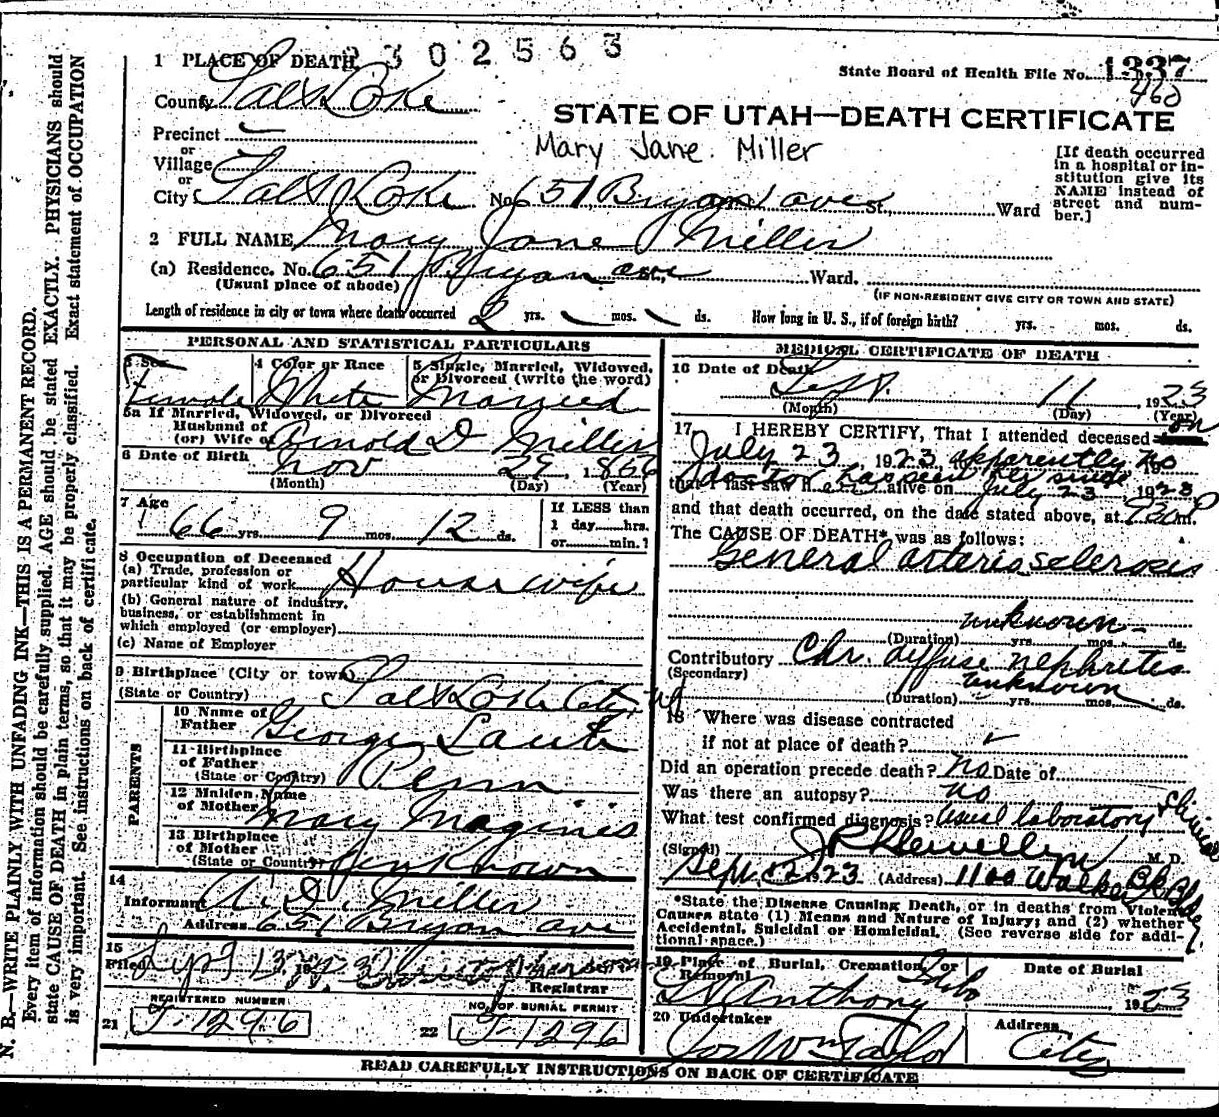 2302563
1 PLACE OF DEATH
State Board of Health File No. 1337
460
County Salt Lake
STATE OF UTAH—DEATH CERTIFICATE
Precinct
Mary Jane Miller
or
Village
or
City Salt Lake No. 651 Bryan ave St., Ward
[If death occurred
in a hospital or in-
stitution give its
NAME instead of
street and num-
ber.]
2 FULL NAME Mary Jane Miller
(a) Residence. No. 651 Bryan ave St., Ward.
(Usual place of abode)
(IF NON-RESIDENT GIVE CITY OR TOWN AND STATE)
Length of residence in city or town where death occurred 2 yrs. mos. ds. How long in U. S., if of foreign birth? yrs. mos. ds.
PERSONAL AND STATISTICAL PARTICULARS
3 Sex 4 Color or Race 5 Single, Married, Widowed,
or Divorced (write the word)
Female White Married
5a If Married, Widowed, or Divorced
Husband of
(or) Wife of Arnold D Miller
6 Date of Birth Nov 29 1856
(Month) (Day) (Year)
7 Age
66 yrs. 9 mos. 12 ds.
If LESS than
1 day......hrs.
or......min.?
8 Occupation of Deceased
(a) Trade, profession or
particular kind of work Housewife
(b) General nature of industry,
business, or establishment in
which employed (or employer)
(c) Name of Employer
9 Birthplace (City or town)
(State or Country) Salt Lake City
PARENTS
10 Name of
Father George
11 Birthplace
of Father
(State or Country) Penn
12 Maiden Name
of Mother Mary Maginis
13 Birthplace
of Mother
(State or Country) Unknown
14
Informant A. D. Miller
Address 651 Bryan ave
15
Filed Sept 13, 1923
Registrar
REGISTERED NUMBER
21 J-1296
NO. OF BURIAL PERMIT
22 J-1296
MEDICAL CERTIFICATE OF DEATH
16 Date of Death
Sept. 11 1923
(Month) (Day) (Year)
17 I HEREBY CERTIFY, That I attended deceased on
July 23 1923, apparently no
doctor has seen her since
that I last saw her alive on July 23 1923
and that death occurred, on the date stated above, at 930 P m.
The CAUSE OF DEATH* was as follows:
General arterio sclerosis
unknown
(Duration) yrs. mos. ds.
Contributory Chr. diffuse nephrites
(Secondary)
unknown
(Duration) yrs. mos. ds.
18 Where was disease contracted
if not at place of death?
Did an operation precede death? no Date of
Was there an autopsy? no
What test confirmed diagnosis? usual laboratory & clinical
(Signed) J P Llewellyn M. D.
Sept 12 1923 (Address) 1100 Walker Bk Bldg
*State the Disease Causing Death, or in deaths from Violent
Causes state (1) Means and Nature of Injury; and (2) whether
Accidental, Suicidal or Homicidal. (See reverse side for addi-
tional space.)
19 Place of Burial, Cremation, or
Removal
Date of Burial
St Anthony Idaho 1923
20 Undertaker Address
Jos Wm Taylor City
READ CAREFULLY INSTRUCTIONS ON BACK OF CERTIFICATE
N. B.—WRITE PLAINLY WITH UNFADING INK—THIS IS A PERMANENT RECORD.
Every item of information should be carefully supplied. AGE should be stated EXACTLY. PHYSICIANS should
state CAUSE OF DEATH in plain terms, so that it may be properly classified. Exact statement of OCCUPATION
is very important. See instructions on back of certificate.